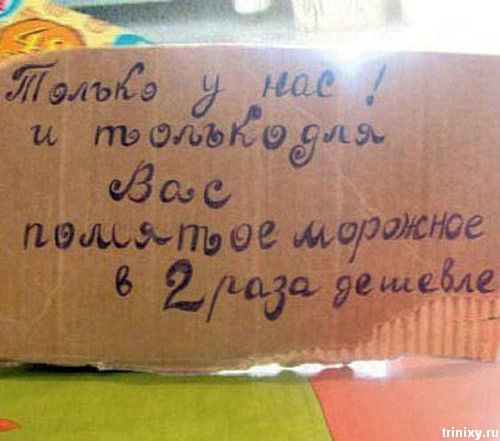 Только у нас!
и только для
Вас
помятое морожное
в 2 раза дешевле
trinixy.ru